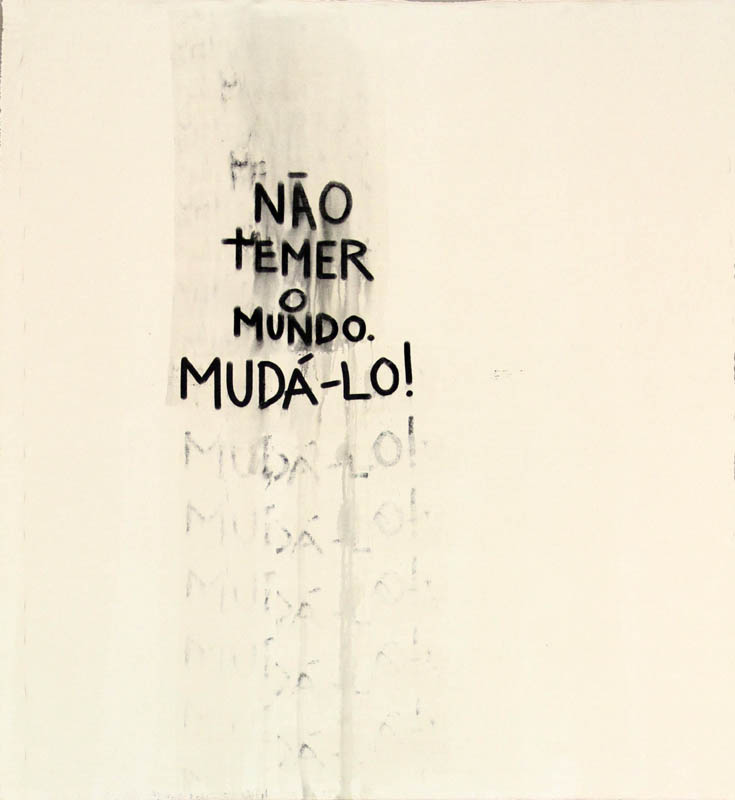 NÃO
TEMER
O
MUNDO.
MUDÁ-LO!
MUDÁ-LO!
MUDÁ-LO!